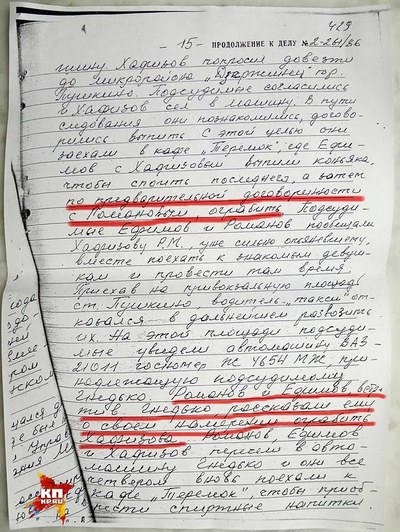 429
- 15 -
ПРОДОЛЖЕНИЕ К ДЕЛУ №2-261/86
шину. Хафизов попросил довезти
до микрорайона „Дзержинец" гор.
Пушкино. Подсудимые согласились
и Хафизов сел в машину. В пути
следования они познакомились, догово-
рились выпить с этой целью они
заехали в кафе „Теремок", где Ефи-
мов с Хафизовым выпили коньяка,
чтобы споить последнего, а затем
по предварительной договоренности
с Романовым, ограбить. Подсуди-
мые Ефимов и Романов пообещали
Хафизову Р.М., уже сильно опьяневшему,
вместе поехать к знакомым девуш-
кам и провести там время.
Приехав на привокзальную площадь
ст. Пушкино, водитель „такси" от-
казался в дальнейшем развозить
их. На этой площади подсуди-
мые увидели автомашину ВАЗ-
21011 госномер Ж 4654 МЖ, при-
надлежащую подсудимому
Гнедько. Романов и Ефимов
в Гнедько, рассказали ему
о своем намерении ограбить
Хафизова. Романов, Ефимов
и Хафизов пересели в авто-
машину Гнедько и они все
четвером вновь поехали к
кафе „Теремок", чтобы приоб-
рести спиртные напитки.
КП
KP.RU